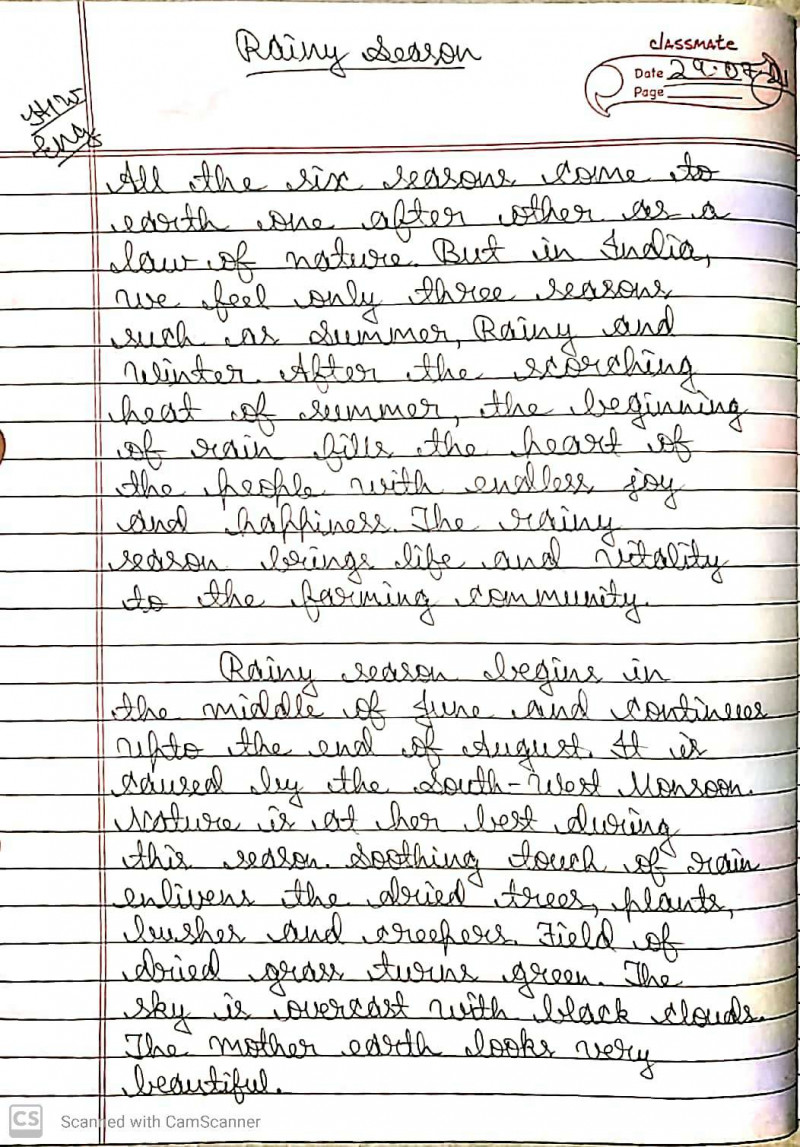 Rainy Season
classmate
Date 29.07.21
Page
H.W
Eng
All the six seasons come to
earth one after other as a
law of nature. But in India,
we feel only three seasons
such as Summer, Rainy and
Winter. After the scorching
heat of summer, the beginning
of rain fills the heart of
the people with endless joy
and happiness. The rainy
season brings life and vitality
to the farming community.
Rainy season begins in
the middle of June and continues
upto the end of August. It is
caused by the South-West Monsoon.
Nature is at her best during
this season. Soothing touch of rain
enlivens the dried trees, plants,
bushes and creepers. Field of
dried grass turns green. The
sky is overcast with black clouds.
The mother earth looks very
beautiful.
CS Scanned with CamScanner